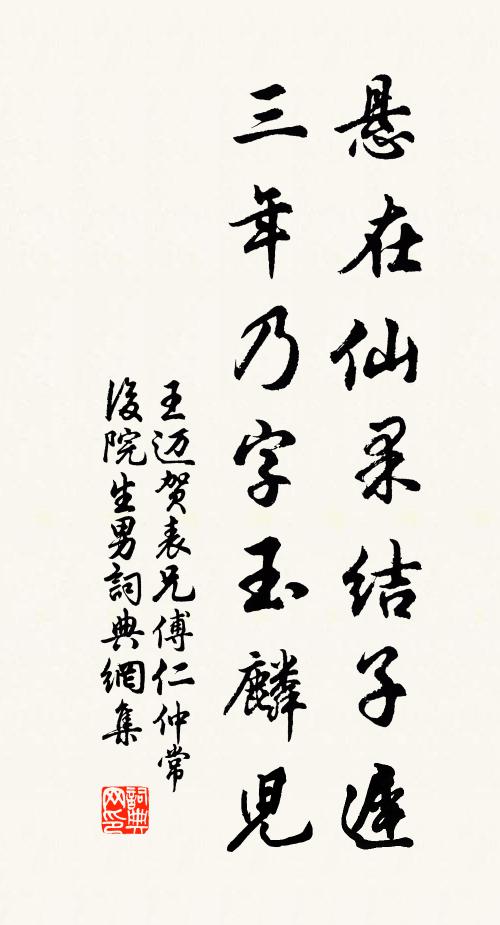 悬在仙果结子遲
三年乃字玉麟児
王迈贺表兄傅仁仲常
後院生男詞典網集
詞典
网印